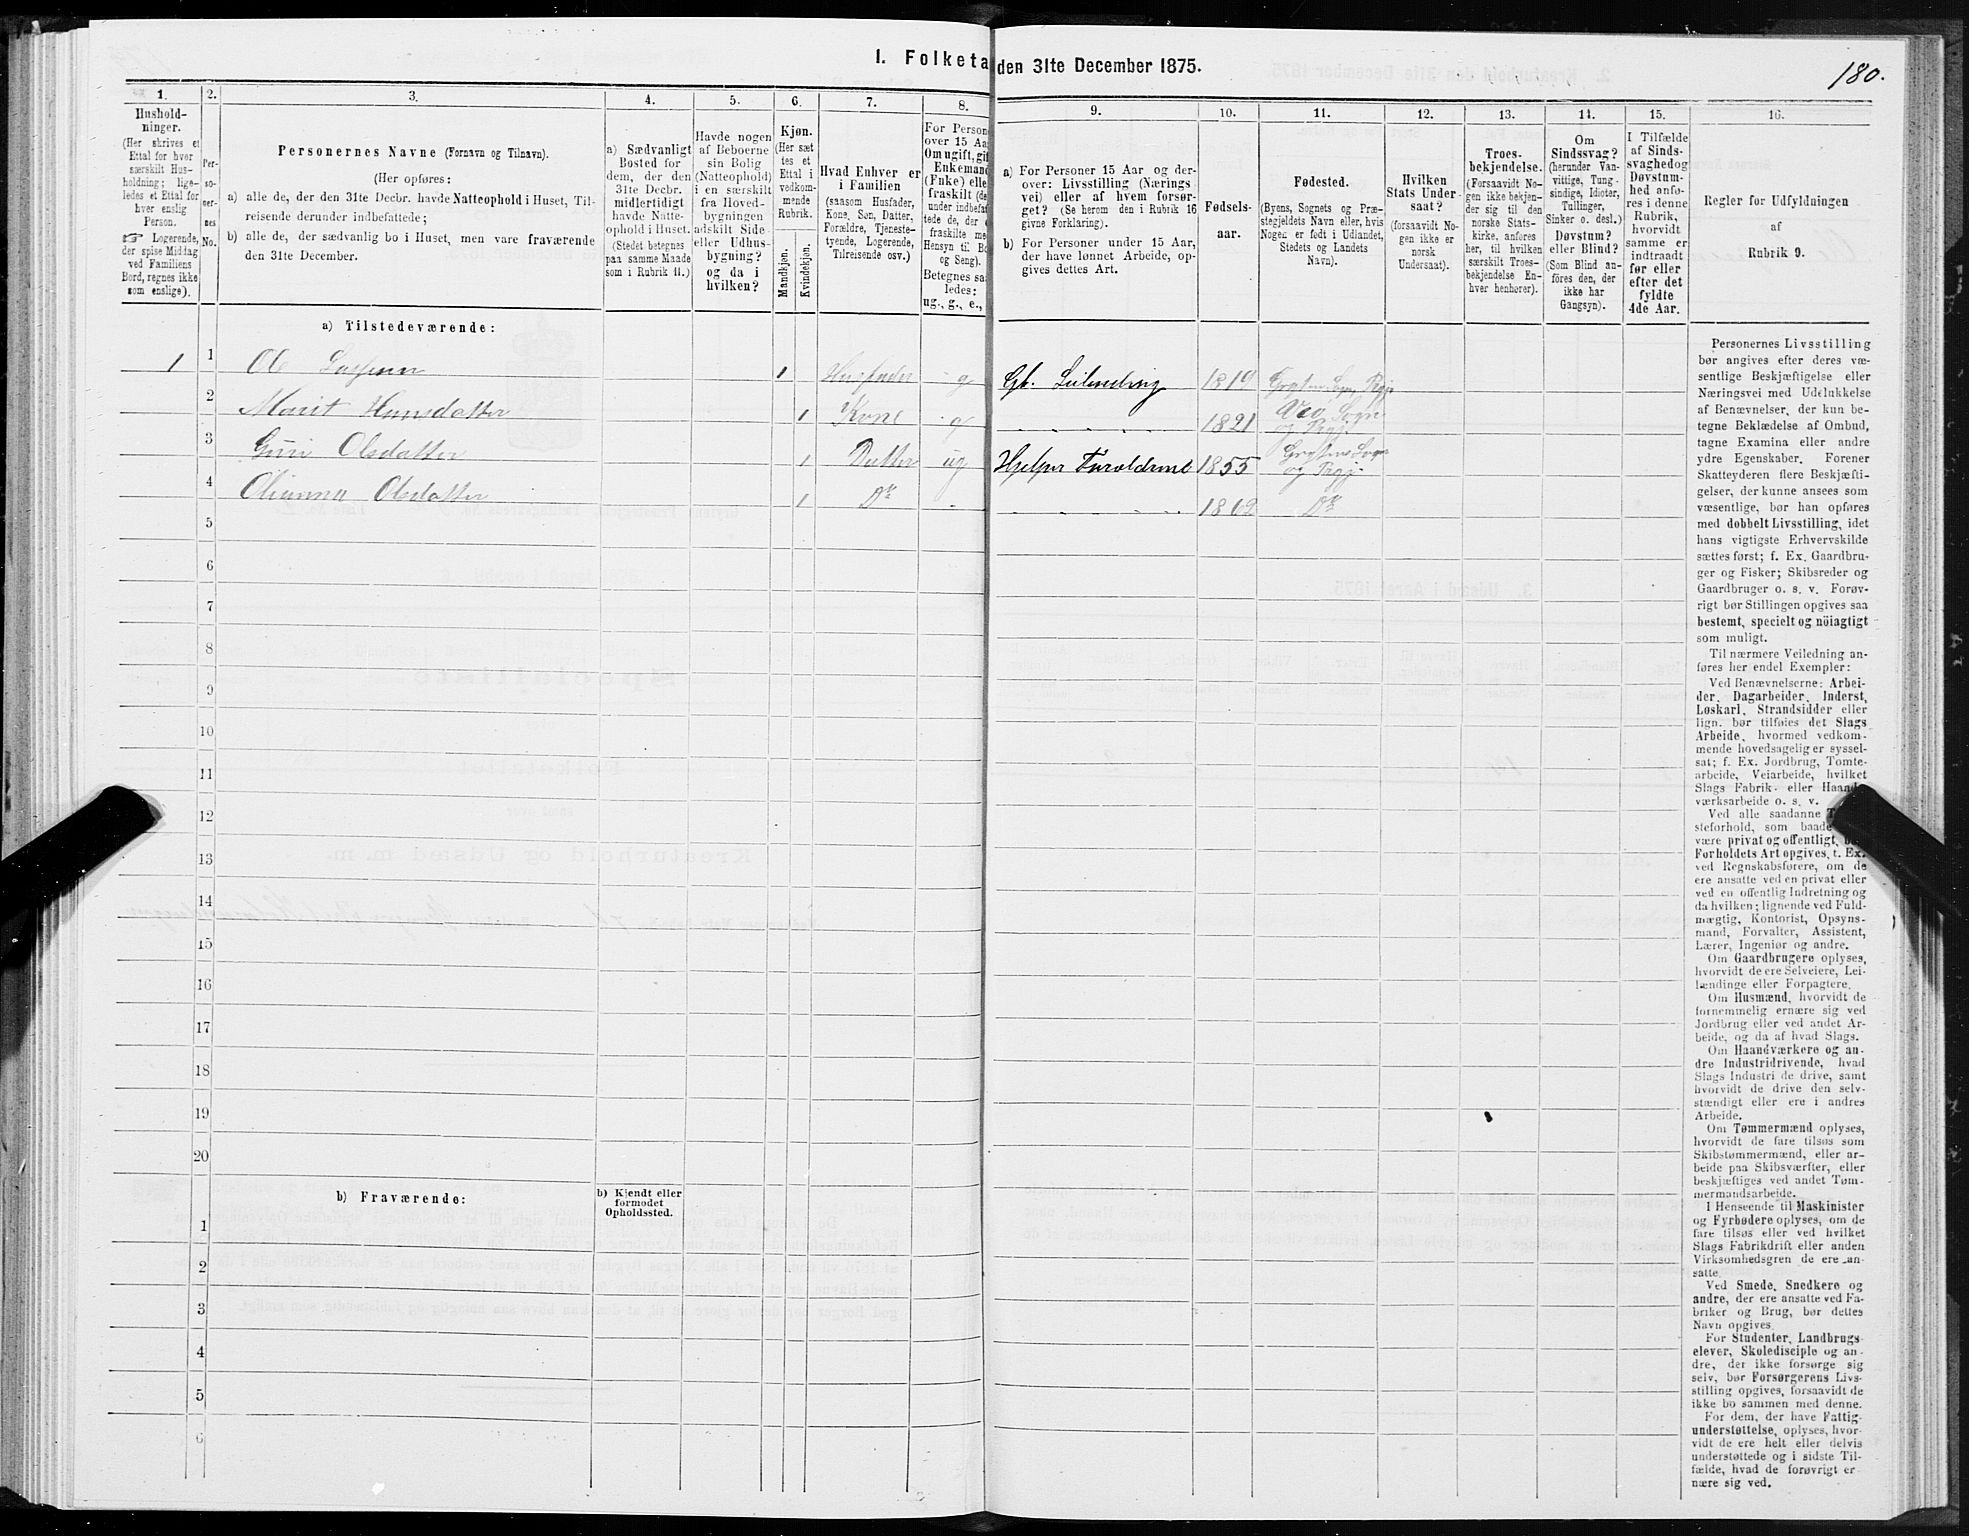 I. Folketa den 31te December 1875.
180.
1.
Hushold-
ninger.
(Her skrives et
Ettal for hver
særskilt Hus-
holdning; lige-
ledes et Ettal for
hver enslig
Person.
☞ Logerende,
der spise Middag
ved Familiens
Bord, regnes ikke
som enslige).
2.
Per-
so-
ner-
nes
No.
3.
Personernes Navne (Fornavn og Tilnavn).
(Her opføres:
a) alle de, der den 31te Decbr. havde Natteophold i Huset, Til-
reisende derunder indbefattede;
b) alle de, der sædvanlig bo i Huset, men vare fraværende
den 31te December.
4.
a) Sædvanligt
Bosted for
dem, der den
31te Decbr.
midlertidigt
havde Natte-
ophold i Huset.
(Stedet betegnes
paa samme Maade
som i Rubrik 11.)
5.
Havde nogen
af Beboerne
sin Bolig
(Natteophold)
i en særskilt
fra Hoved-
bygningen
adskilt Side-
eller Udhus-
bygning?
og da i
hvilken?
6.
Kjøn.
(Her sæt-
tes et
Ettal i
vedkom-
mende
Rubrik.
Mandkjøn.
Kvindekjøn.
7.
Hvad Enhver er
i Familien
(saasom Husfader,
Kone, Søn, Datter,
Forældre, Tjeneste-
tyende, Logerende,
Tilreisende osv.)
8.
For Person
over 15 Aa
Om ugift, gif
Enkemand
(Enke) elle
fraskilt (de
under indbefat
tede de, der e
fraskilte med
Hensyn til Bo
og Seng).
Betegnes sa
ledes:
ug., g., e.,
9.
a) For Personer 15 Aar og der-
over: Livsstilling (Nærings-
vei) eller af hvem forsør-
get? (Se herom den i Rubrik 16
givne Forklaring).
b) For Personer under 15 Aar,
der have lønnet Arbeide, op-
gives dettes Art.
10.
Fødsels-
aar.
11.
Fødested.
(Byens, Sognets og Præ-
stegjeldets Navn eller, hvis
Nogen er født i Udlandet,
Stedets og Landets
Navn).
12.
Hvilken
Stats Under-
saat?
(forsaavidt No-
gen ikke er
norsk
Undersaat).
13.
Troes-
bekjendelse.
(Forsaavidt No-
gen ikke bekjen-
der sig til den
norske Stats-
kirke, anføres
her, til hvilken
særskilt Troes-
bekjendelse En-
hver henhører).
14.
Om
Sindssvag?
(herunder Van-
vittige, Tung-
sindige, Idioter,
Tullinger,
Sinker o. desl.)
Døvstum?
eller Blind?
(Som Blind an-
føres den, der
ikke har
Gangsyn).
15.
I Tilfælde
af Sinds-
svaghed og
Døvstum-
hed anfø-
res i denne
Rubrik,
hvorvidt
samme er
indtraadt
før eller
efter det
fyldte
4de Aar.
16.
Regler for Udfyldningen
af
Rubrik 9.
a) Tilstedeværende:
1 1 Ole 1 Husfader g Gb. 1819
2 Marit Hansdatter 1 Kone g 1821 Veo Sogn og Prgj
3 Guri Olsdatter 1 Datter ug Hjelper Foreldrene 1855 Sogn og Prgj
4 Olianna Olsdatter 1 Do 1862 Do
5
6
7
8
9
10
11
12
13
14
15
16
17
18
19
20
b) Fraværende:
b) Kjendt eller
formodet
Opholdssted.
1
2
3
4
5
6
Personernes Livsstilling
bør angives efter deres væ-
sentlige Beskjæftigelse eller
Næringsvei med Udelukkelse
af Benævnelser, der kun be-
tegne Beklædelse af Ombud,
tagne Examina eller andre
ydre Egenskaber. Forener
Skatteyderen flere Beskjæfti-
gelser, der kunne ansees som
væsentlige, bør han opføres
med dobbelt Livsstilling, idet
hans vigtigste Erhvervskilde
sættes først; f. Ex. Gaardbru-
ger og Fisker; Skibsreder og
Gaardbruger o. s. v. Forøv-
rigt bør Stillingen opgives saa
bestemt, specielt og nöiagtigt
som muligt.
Til nærmere Veiledning an-
føres her endel Exempler:
Ved Benævnelserne: Arbei-
der, Dagarbeider, Inderst,
Løskarl, Strandsidder eller
lign. bør tilføies det Slags
Arbeide, hvormed vedkom-
mende hovedsagelig er syssel-
sat; f. Ex. Jordbrug, Tomte-
arbeide, Veiarbeide, hvilket
Slags Fabrik- eller Haand-
værksarbeide o. s. v.
Ved alle saadanne
steforhold, som baade
være privat og offentligt,
Forholdets Art opgives, t. Ex.
ved Regnskabsførere, om de
ere ansatte ved en privat eller
ved en offentlig Indretning og
da hvilken; lignende ved Fuld-
mægtig, Kontorist, Opsyns-
mand, Forvalter, Assistent,
Lærer, Ingeniør og andre.
Om Gaardbrugere oplyses,
hvorvidt de ere Selveiere, Lei-
lændinge eller Forpagtere.
Om Husmænd, hvorvidt de
fornemmelig ernære sig ved
Jordbrug eller ved andet Ar-
beide, og da af hvad Slags.
Om Haandværkere og an-
dre Industridrivende, hvad
Slags Industri de drive, samt
hvorvidt de drive den selv-
stændigt eller ere i andres
Arbeide.
Om Tømmermænd oplyses,
hvorvidt de fare tilsøs som
Skibstømmermænd, eller ar-
beide paa Skibsværfter, eller
beskjæftiges ved andet Tøm-
mermandsarbeide.
I Henseende til Maskinister
og Fyrbødere oplyses, om de
fare tilsøs eller ved hvilket
Slags Fabrikdrift eller anden
Virksomhedsgren de ere an-
satte.
Ved Smede, Snedkere og
andre, der ere ansatte ved Fa-
briker og Brug, bør dettes
Navn opgives.
For Studenter, Landbrugs-
elever, Skoledisciple og an-
dre, der ikke forsørge sig
selv, bør Forsørgerens Livs-
stilling opgives, forsaavidt de
ikke bo sammen med denne.
For dem, der have Fattig-
understøttelse, oplyses, hvor-
vidt de ere helt eller delvis
understøttede og i sidste Til-
fælde, hvad de forøvrigt er-
nære sig ved.